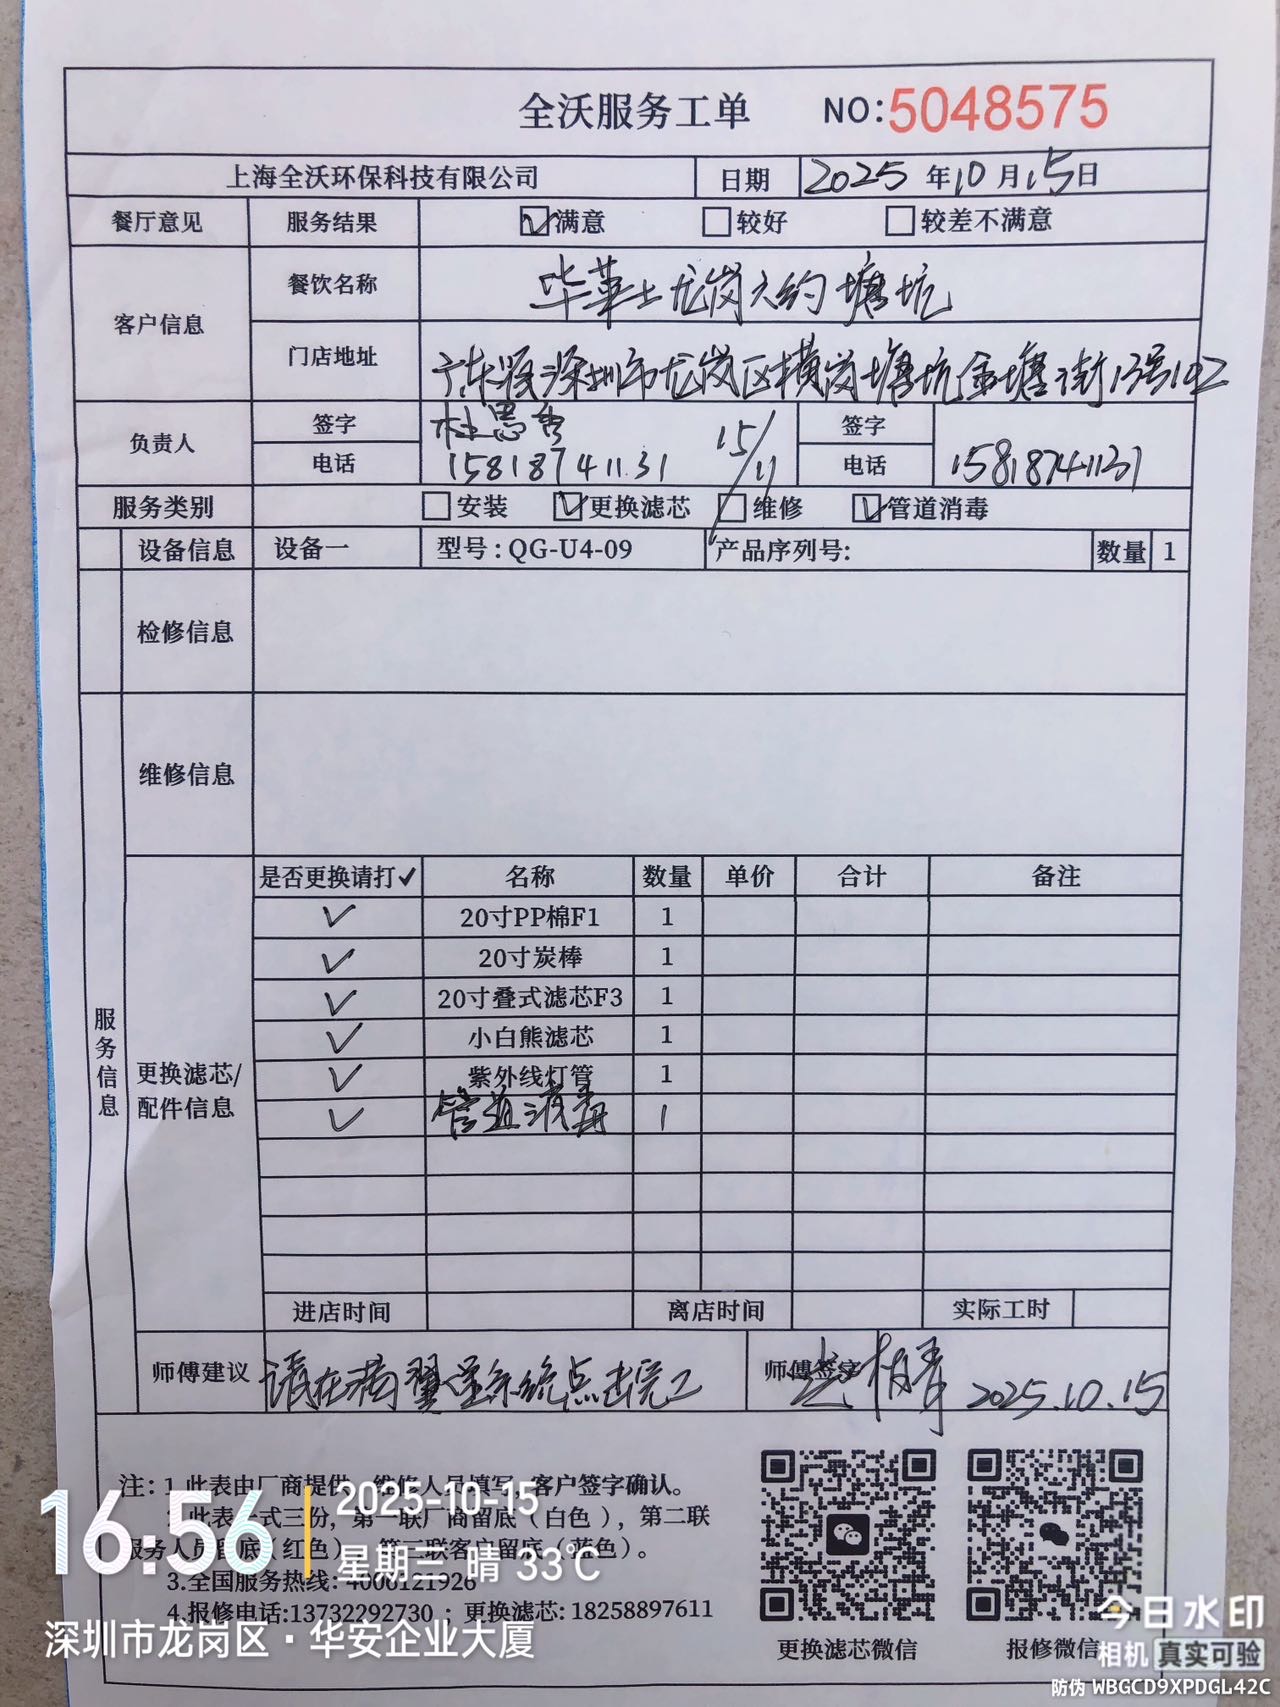 全沃服务工单 NO:5048575
上海全沃环保科技有限公司 日期 2025 年 10 月 15 日
餐厅意见 服务结果 满意 较好 较差不满意
客户信息 餐饮名称 华莱士龙岗六约塘坑
门店地址 广东深圳市龙岗区横岗塘坑金塘街13号102
负责人 签字 杜思 15/11 签字
电话 15818741131 电话 15818741131
服务类别 安装 更换滤芯 维修 管道消毒
设备信息 设备一 型号:QG-U4-09 产品序列号: 数量 1
检修信息
维修信息
服务信息
更换滤芯/
配件信息
是否更换请打✓ 名称 数量 单价 合计 备注
✓ 20寸PP棉F1 1
✓ 20寸炭棒 1
✓ 20寸叠式滤芯F3 1
✓ 小白熊滤芯 1
✓ 紫外线灯管 1
✓ 管道消毒 1
进店时间 离店时间 实际工时
师傅建议 请在 系统点击完工 师傅签字 青 2025.10.15
注：1.此表由厂商提供，维修人员填写，客户签字确认。
2.此表一式三份，第一联厂商留底（白色），第二联
服务人员留底（红色），第三联客户留底（蓝色）。
3.全国服务热线：4000121926
4.报修电话:13732292730 ；更换滤芯: 18258897611
更换滤芯微信 报修微信
16:56
2025-10-15
星期三 晴 33℃
深圳市龙岗区·华安企业大厦
今日水印
相机 真实可验
防伪 WBGCD9XPDGL42C